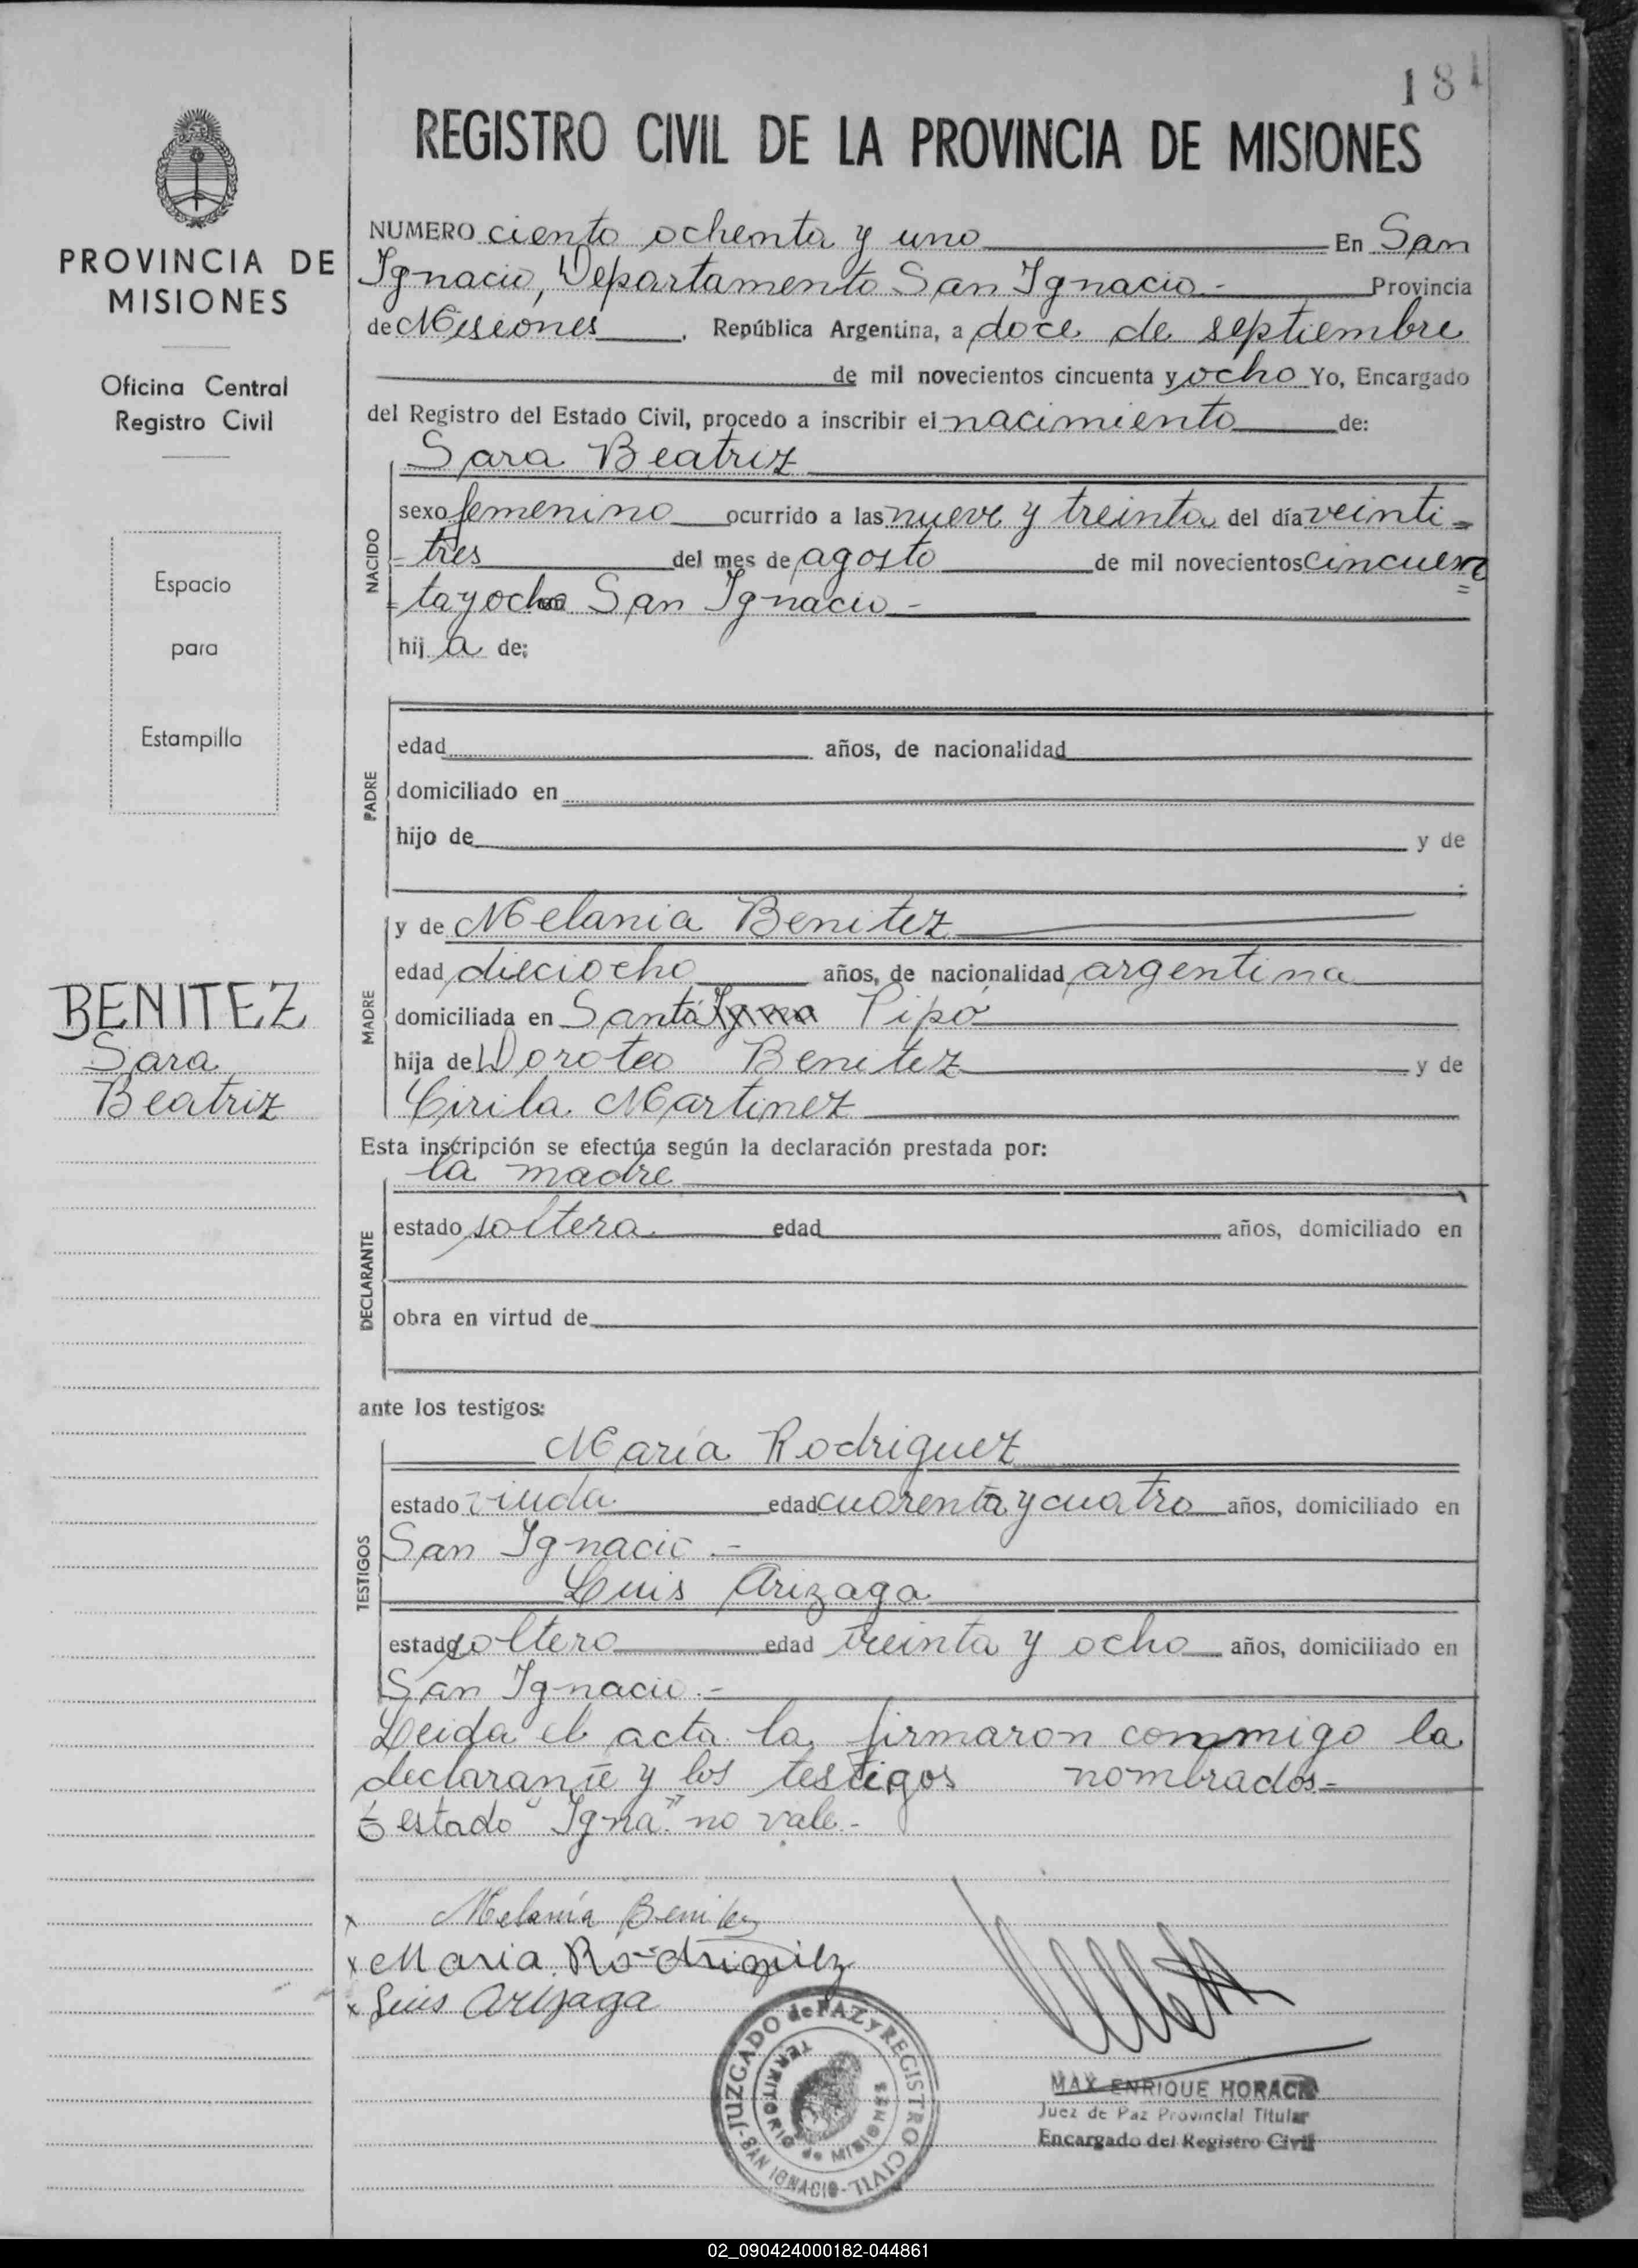 181
REGISTRO CIVIL DE LA PROVINCIA DE MISIONES
PROVINCIA DE
MISIONES
Oficina Central
Registro Civil
Espacio
para
Estampilla
BENITEZ
Sara
Beatriz
NUMERO ciento ochenta y uno En San
Ignacio, Departamento San Ignacio.- Provincia
de Misiones, República Argentina, a doce de septiembre
de mil novecientos cincuenta y ocho Yo, Encargado
del Registro del Estado Civil, procedo a inscribir el nacimiento de:
NACIDO
Sara Beatriz
sexo femenino ocurrido a las nueve y treinta del día veinti-
-tres del mes de agosto de mil novecientos cincuen=
=ta y ocho San Ignacio-
hij a de:
PADRE
edad años, de nacionalidad
domiciliado en
hijo de y de
MADRE
y de Melania Benitez
edad dieciocho años, de nacionalidad argentina
domiciliada en Santo Igna Pipó
hija de Doroteo Benitez y de
Cirila Martinez
Esta inscripción se efectúa según la declaración prestada por:
DECLARANTE
la madre
estado soltera edad años, domiciliado en
obra en virtud de
ante los testigos:
TESTIGOS
María Rodriguez
estado viuda edad cuarenta y cuatro años, domiciliado en
San Ignacio.-
Luis Arizaga
estado soltero edad treinta y ocho años, domiciliado en
San Ignacio.-
Leida el acta la firmaron conmigo la
declarante y los testigos nombrados-
Testado "Igna" no vale-
x Melania Benitez
x Maria Rodriguez
x Luis Arizaga
JUZGADO de PAZ y REGISTRO CIVIL - SAN IGNACIO -
TERRITORIO de MISIONES
MAX ENRIQUE HORACK
Juez de Paz Provincial Titular
Encargado del Registro Civil
02_090424000182-044861